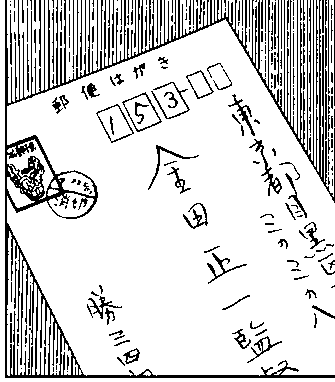 郵便はがき
153
東京都目黒区
三の三の八
金田正一監
勝三四